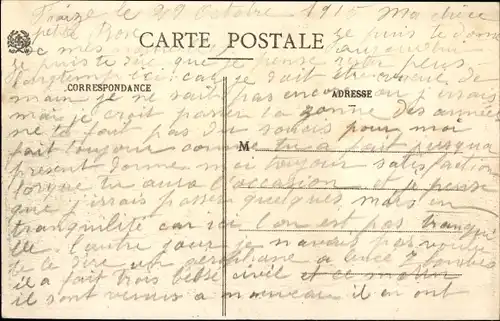 Fraize le 29 Octobre 1915 Ma chère
petite Rose je puis te donner
CARTE POSTALE
c mes aujourdhui
je puis te dire que je pense rester plus
longtemps ici car je doit être de
CORRESPONDANCE
ADRESSE
main je ne sait pas encore ou j'irais
mai je croit passer la zonne des armées
ne te fait pas du soucis pour moi
M
fait toujour comme tu a fait jusqua
present donne moi toujour satisfaction
lorque tu aura l'occasion et je pense
que j'irais passer quelques mois en
tranquilité car ici l'on est pas tranqui
lle l'autre jour je navais pas voulu
te le dire un aeroplane a lancé 7 bombes
il a fait trois civil et ce matin
il sont venus a nouveau il en ont